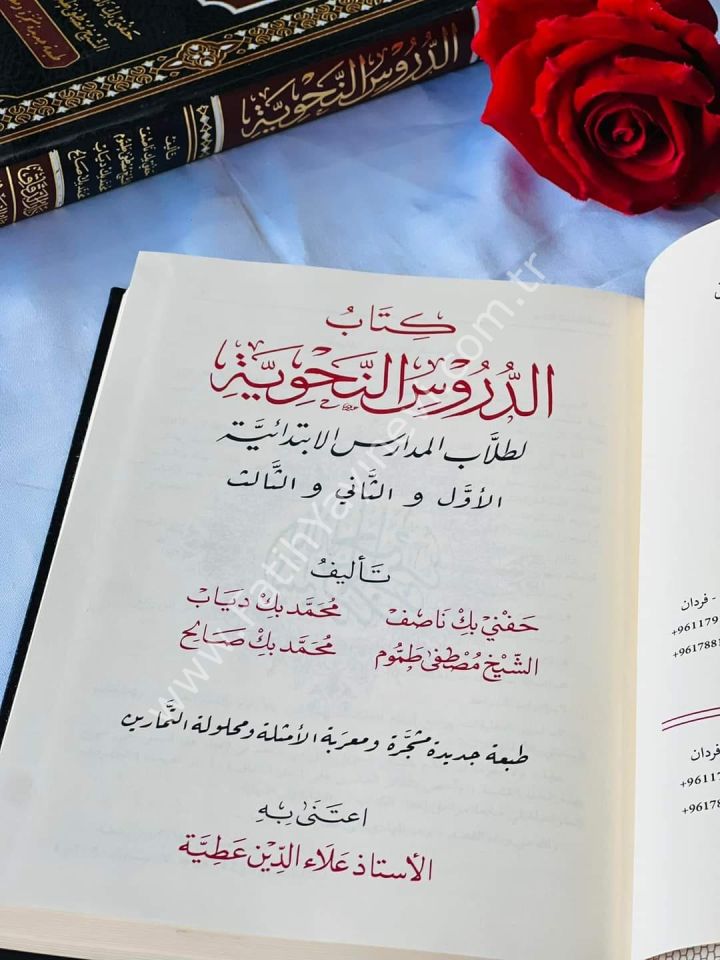 الدُّرُوسُ النَّحْوِيَّةُ
تأليف
كِتَابُ
الدُّرُوسِ النَّحْوِيَّةِ
لطلَّاب المدارس الابتدائيَّة
الأوَّل و الثَّاني و الثَّالث
تَأليفُ
حَفْني بِك نَاصِف مُحَمَّد بِك دِيَاب
الشَّيْخ مُصْطَفَى طَمُّوم مُحَمَّد بِك صَالِح
طبعة جديدة مشجَّرة ومعربة الأمثلة ومحلولة التَّمارين
اعتَنَى بِهِ
الأستاذ عَلَاء الدِّيْن عَطِيَّة
- فردان
+961179
+9617881
فردان
+96117
+96178
www.FatihYayinevi.com.tr